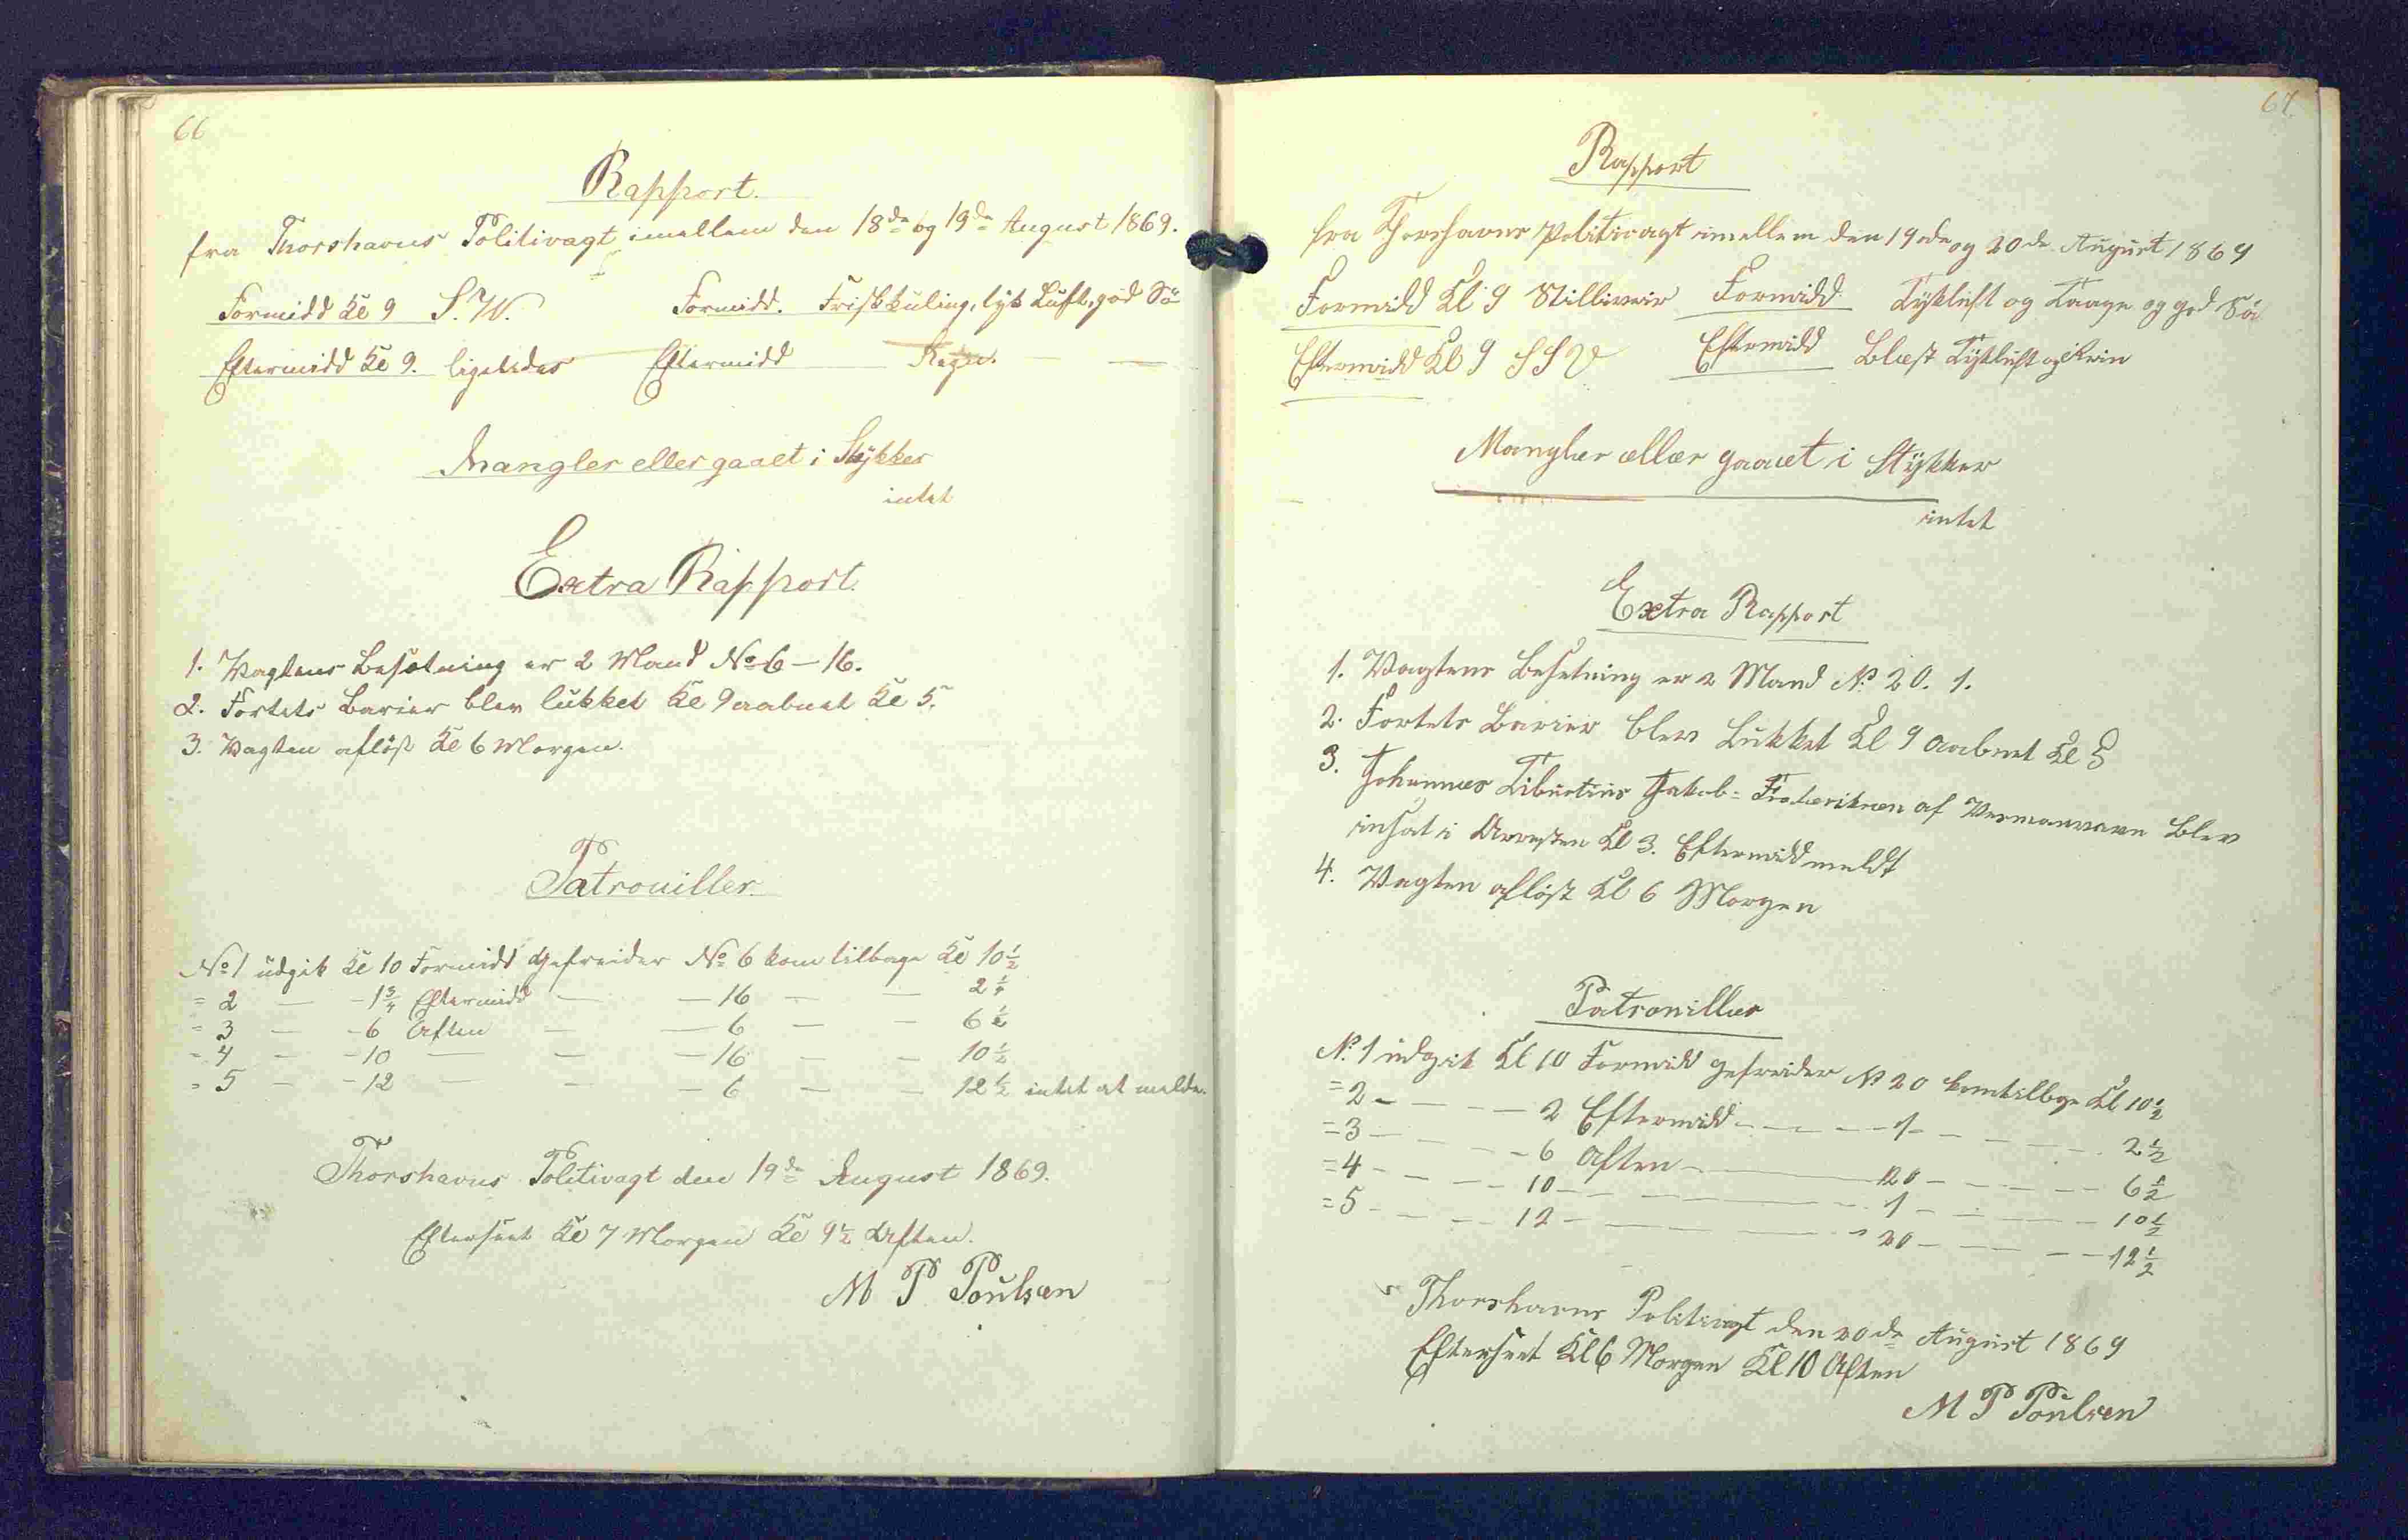 66
Rapport.
fra Thorshavns Politivagt imellem den 18de og 19de August 1869.
Formidd Kl 9 S.W. Formidd. Friskkuling, tyk Luft, god Sö
Eftermidd Kl 9. ligeledes Eftermidd — Regn. — —
Mangler eller gaaet i Stykker
intet
Extra Rapport.
1. Vagtens Besætning er 2 Mand No 6 — 16.
2. Fortets Barier blev lukket Kl 9 aabnet Kl 5.
3. Vagten aflöst Kl 6 Morgen.
Patrouiller.
No 1 udgik Kl 10 Formidd Gefreider No 6 kom tilbage Kl 10 1/2
= 2 — - 1 3/4 Eftermidd — — 16 — — 2 1/4
= 3 — - 6 Aften — — 6 — — 6 1/2
= 4 — - 10 — — — 16 — — 10 1/2
= 5 — - 12 — — — 6 — — 12 1/2 intet at melde.
Thorshavns Politivagt den 19de August 1869.
Efterseet Kl 7 Morgen Kl 9 1/2 Aften.
M P Poulsen
67.
Rapport
fra Thorshavns Politivagt imellem den 19de og 20de August 1869
Formidd Kl 9 Stilleveir Formidd Tykluft og Taage og god Sö
Eftermidd Kl 9 SSV Eftermidd Blæst Tykluft og Rein
Mangler eller gaaet i Stykker
intet
Extra Rapport
1. Vagtens Besetning er 2 Mand No 20. 1.
2. Fortets Barier blev Lukket Kl 9 aabnet Kl 5
3. Johannes Tiburtius Jakob= Frederiksen af Vesmanhavn blev
insat i Arresten Kl 3. Eftermidd meldt
4. Vagten aflöst Kl 6 Morgen
Patrouiller
No 1 udgik Kl 10 Formidd gefreider No 20 kom tilbge Kl 10 1/2
= 2 - — — 2 Eftermidd - — — 1 - — — 2 1/2
= 3 — — - 6 Aften - — 20 - — — 6 1/2
= 4 - — — 10 - — — 1 - — — 10 1/2
= 5 - — — 12 - — — 20 - — — 12 1/2
Thorshavns Politivagt den 20de August 1869
Efterseet Kl 6 Morgen Kl 10 Aften
M P Poulsen